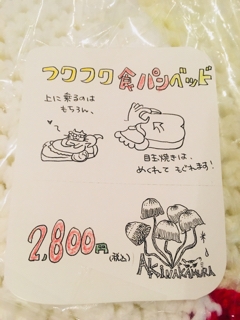 フワフワ食パンベッド
上に乗るのは
もちろん、
目玉焼きは、
めくれて もぐれます!
2,800円(税込)
AKINAKAMURA